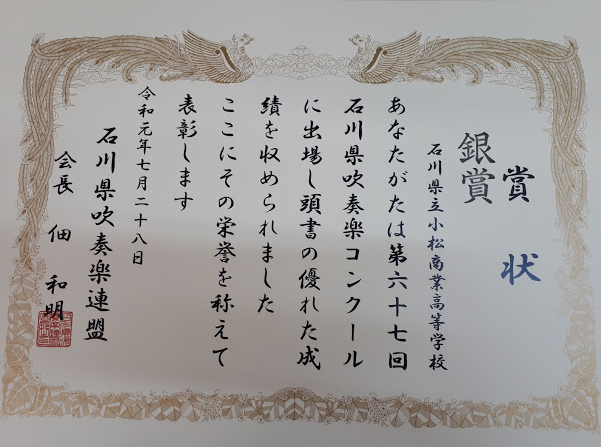 賞状
銀賞
石川県立小松商業高等学校
あなたがたは第六十七回
石川県吹奏楽コンクール
に出場し頭書の優れた成
績を収められました
ここにその栄誉を称えて
表彰します
令和元年七月二十八日
石川県吹奏楽連盟
会長 佃 和明